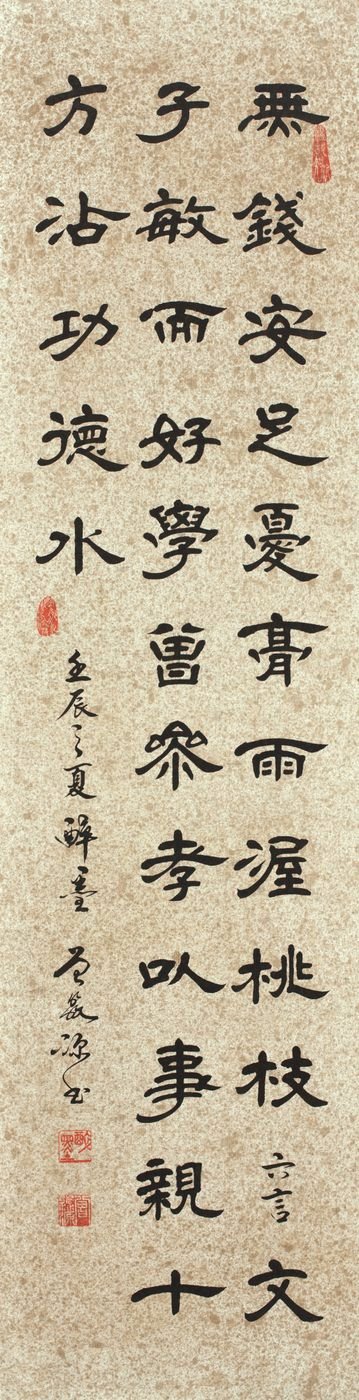 無錢安足憂膏雨渥桃枝六言文
子敏而好學曾參孝以事親十
方沾功德水
壬辰之夏醉墨